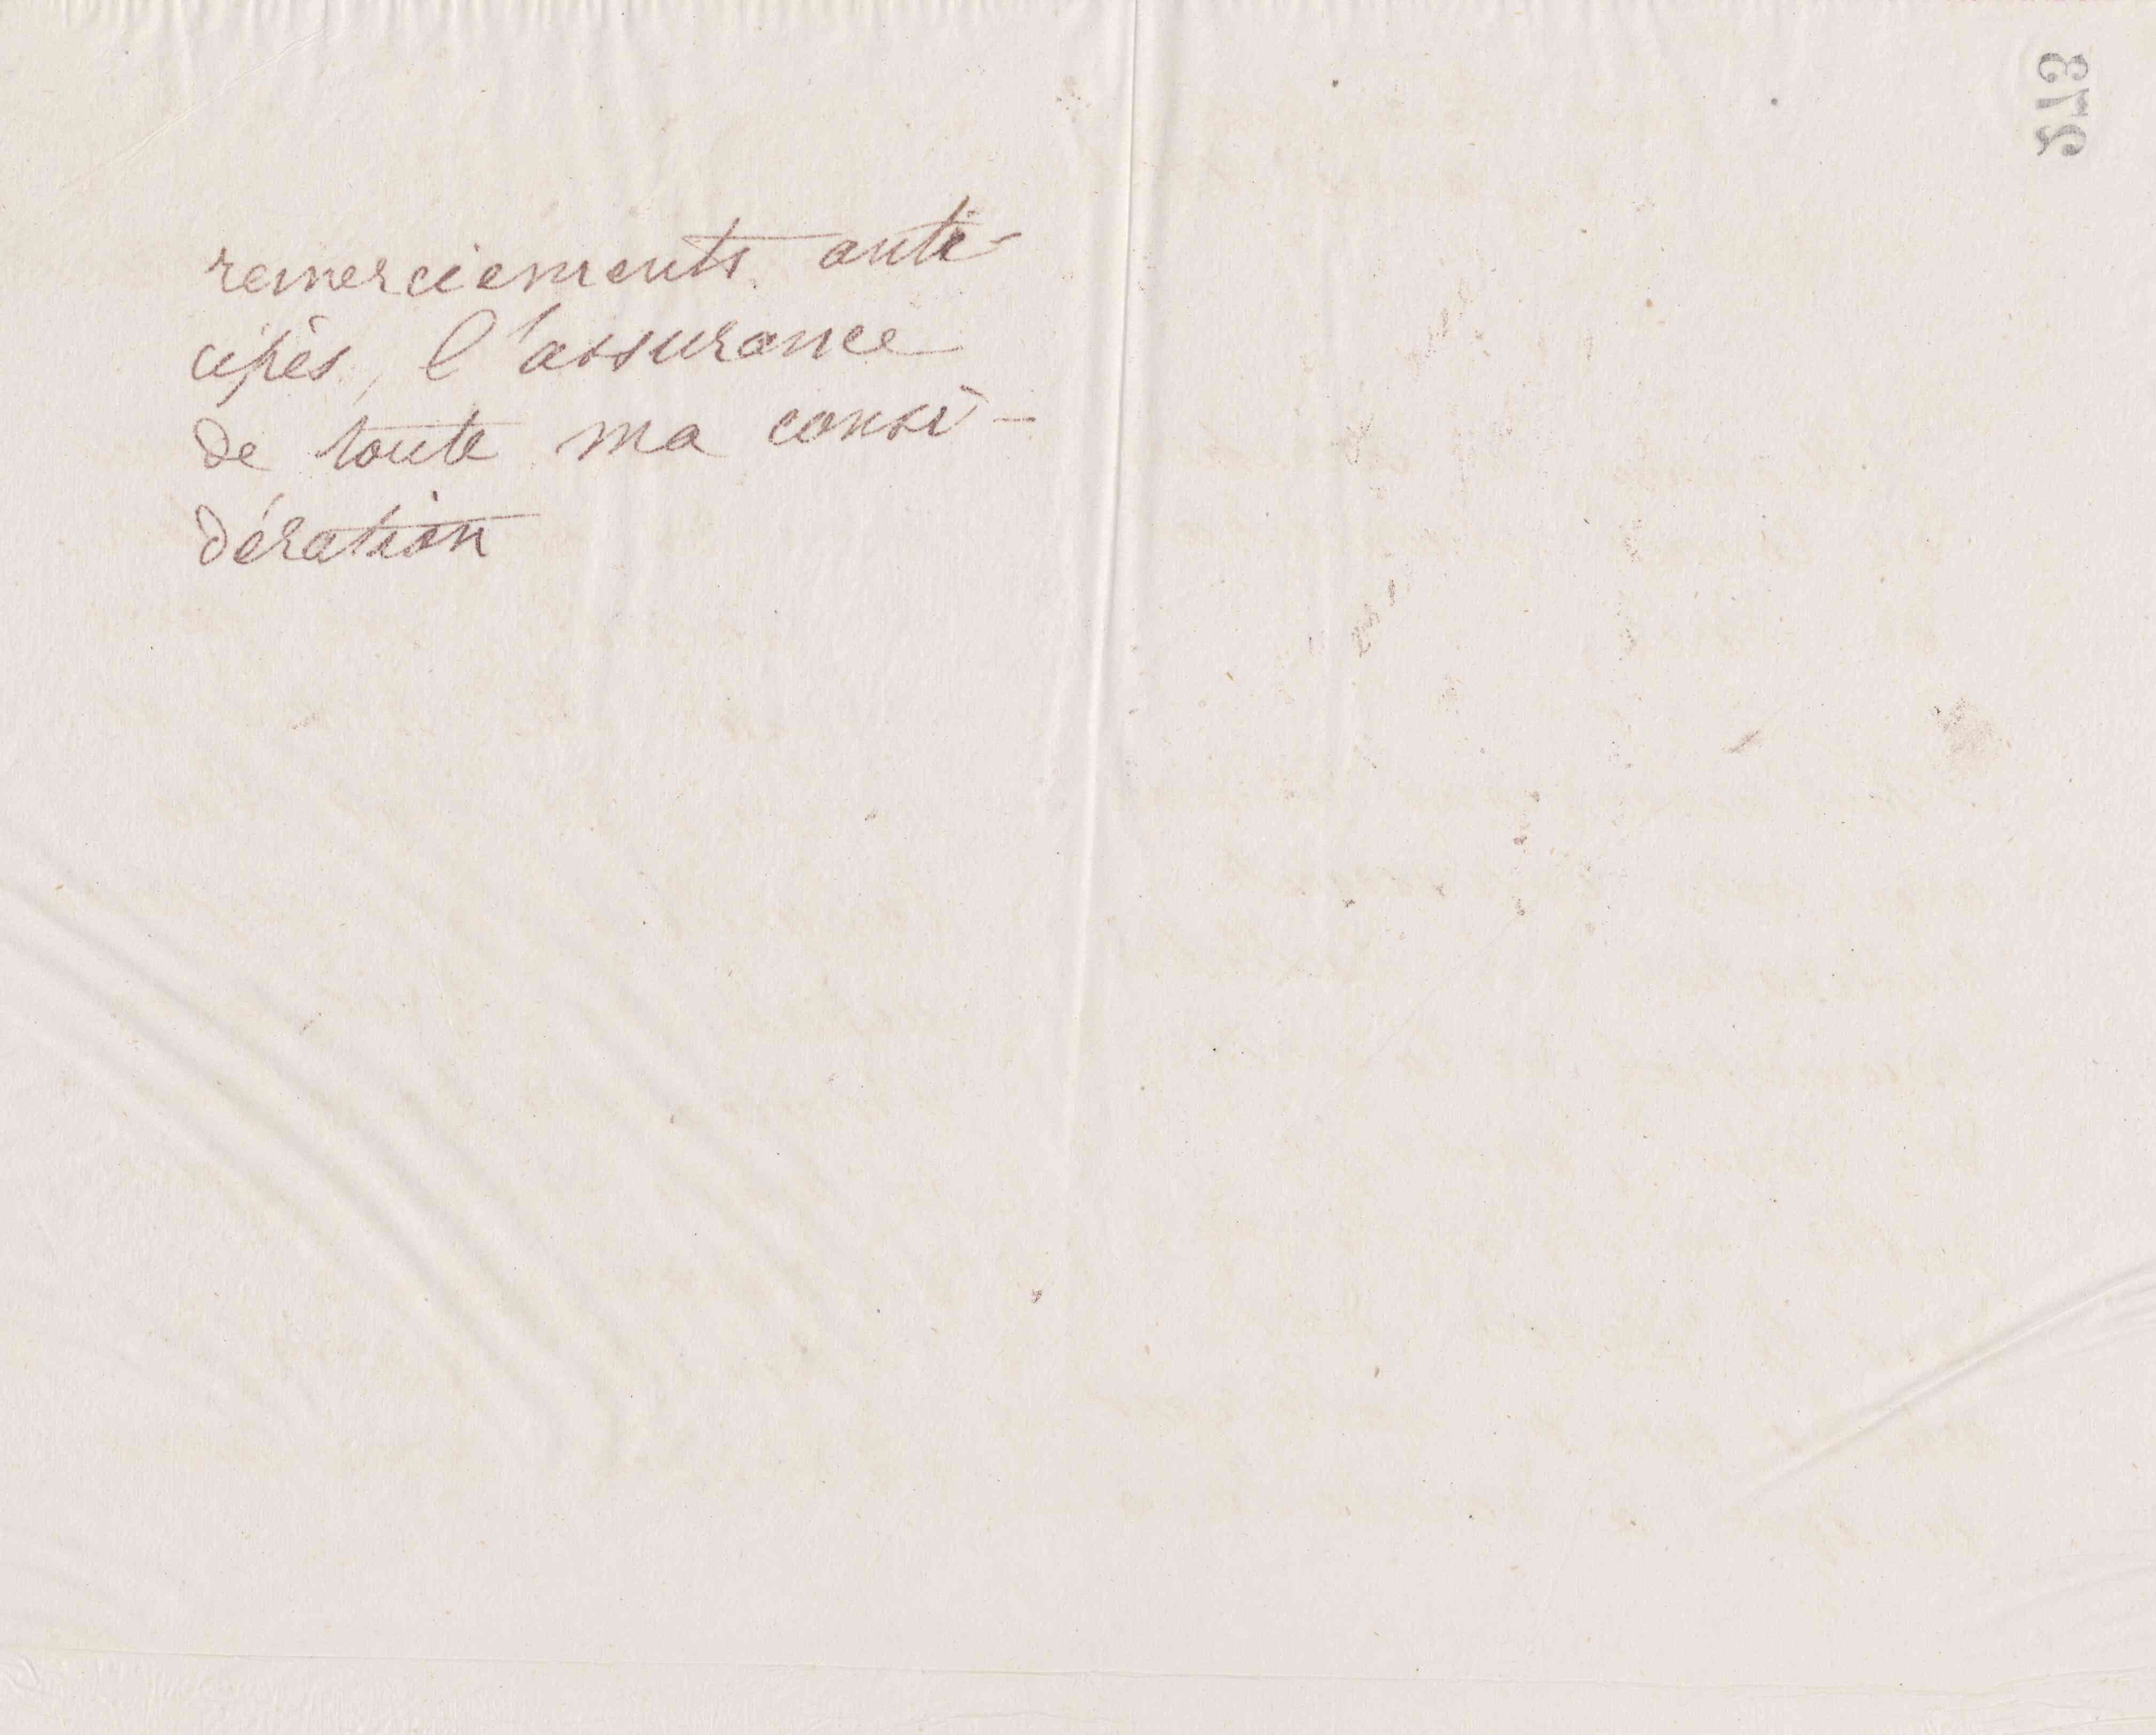 remerciements anti-
cipés, l'assurance
de toute ma consi-
dération
273